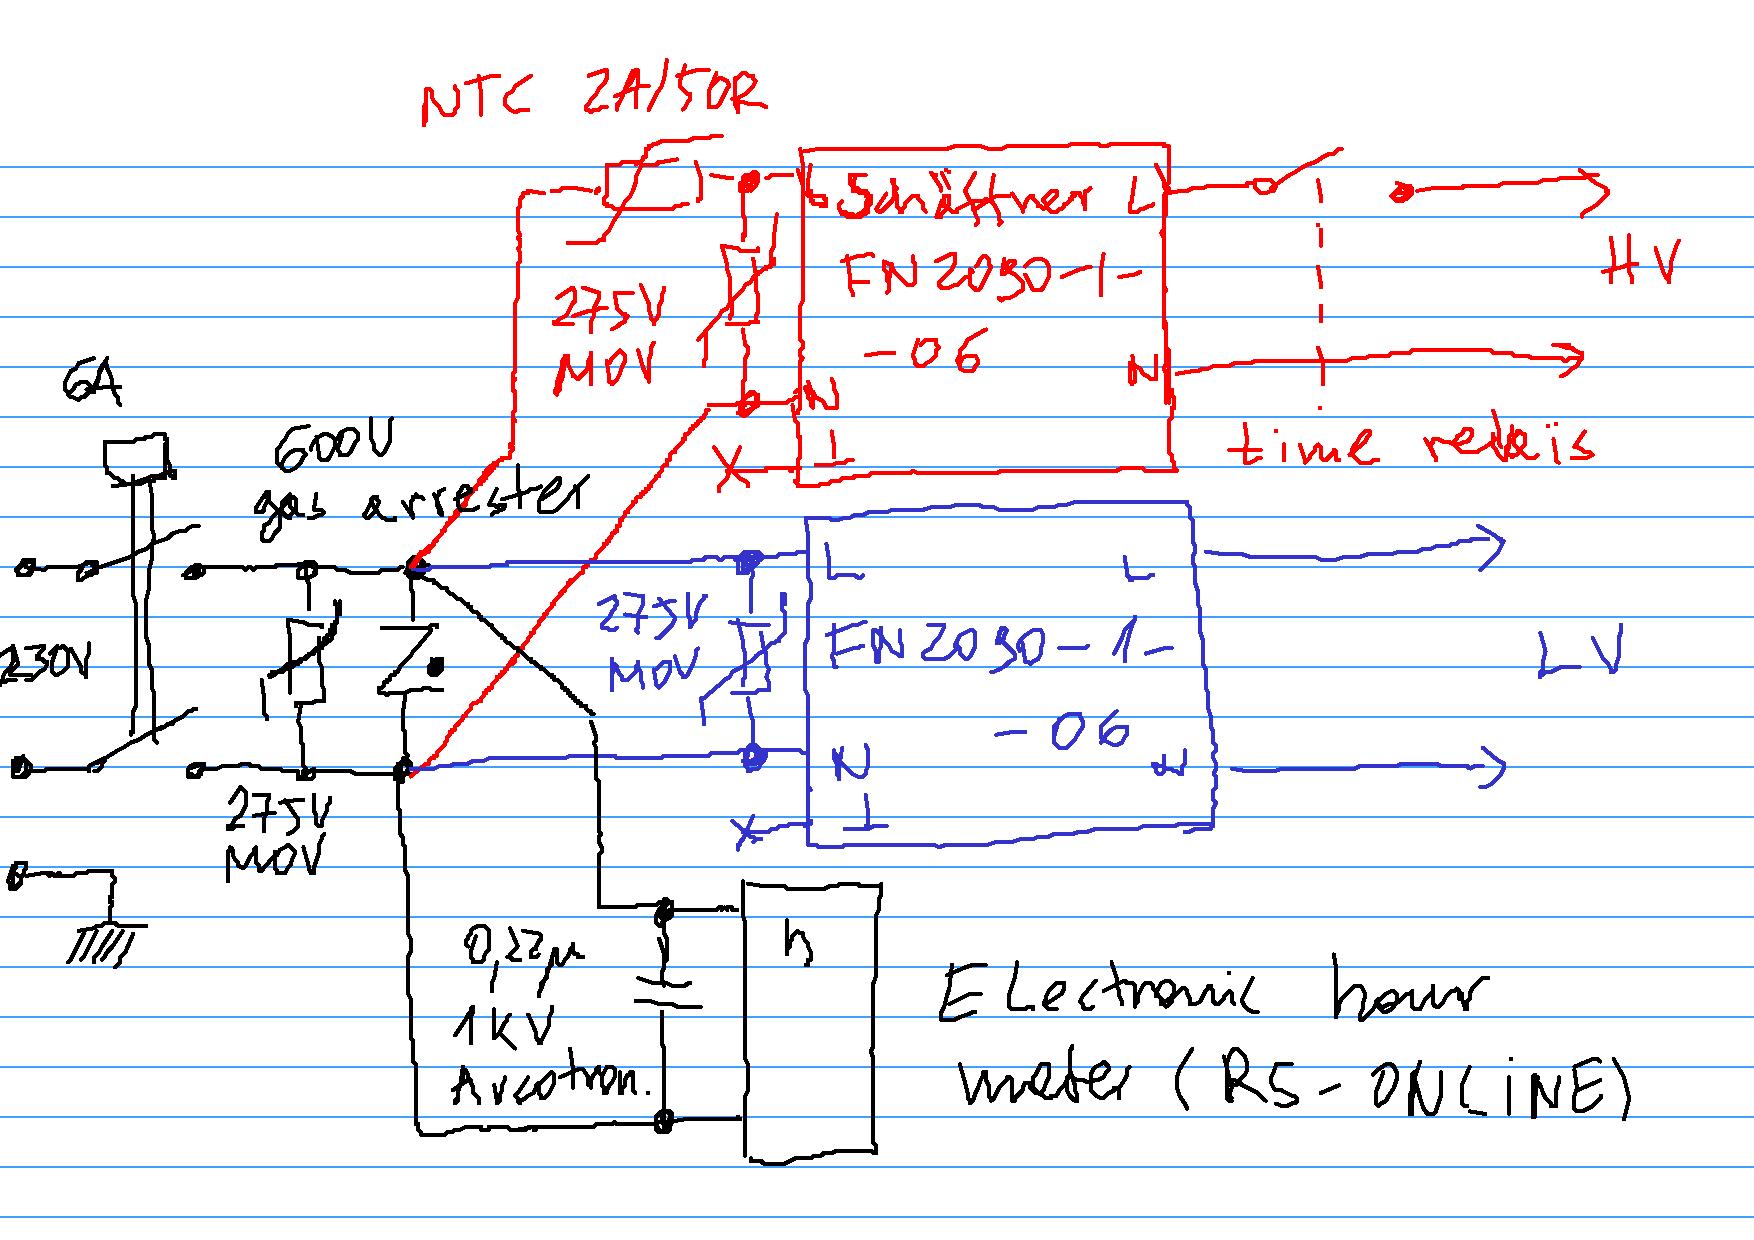 NTC 2A/50R
L Schäffner L
FN2030-1-
-06
N N
⊥
275V
MOV
HV
time relais
6A
600V
gas arrester
230V
275V
MOV
275V
MOV
L L
FN2030-1-
-06
N N
⊥
LV
0,22µ
1KV
Arcotron.
h
ELectronic hour
meter (RS-ONLiNE)